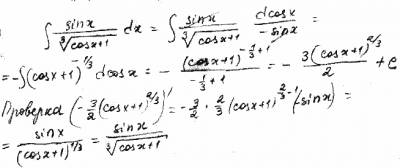 ∫ sinx / ∛(cosx+1) dx = ∫ sinx / ∛(cosx+1) · dcosx / -sinx =
= -∫ (cosx+1)^(-1/3) dcosx = - (cosx+1)^(-1/3+1) / (-1/3+1) = - 3(cosx+1)^(2/3) / 2 + C
Проверка (-3/2 (cosx+1)^(2/3))' = -3/2 · 2/3 (cosx+1)^(2/3-1) (-sinx) =
= sinx / (cosx+1)^(1/3) = sinx / ∛(cosx+1)